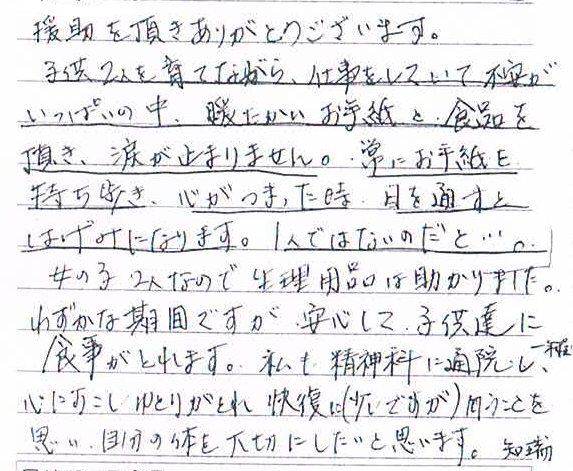 援助を頂きありがとうございます。
子供2人を育てながら、仕事をしていて不安が
いっぱいの中、暖たかいお手紙と食品を
頂き、涙が止まりません。常にお手紙を
持ち歩き、心がつまった時、目を通すと
はげみになります。1人ではないのだと…。
女の子2人なので生理用品は助かりました。
わずかな期間ですが、安心して、子供達に
食事がとれます。私も精神科に通院し、
心にすこしゆとりがとれ快復に(少しですが)向うことを
思い、自分の体を大切にしたいと思います。